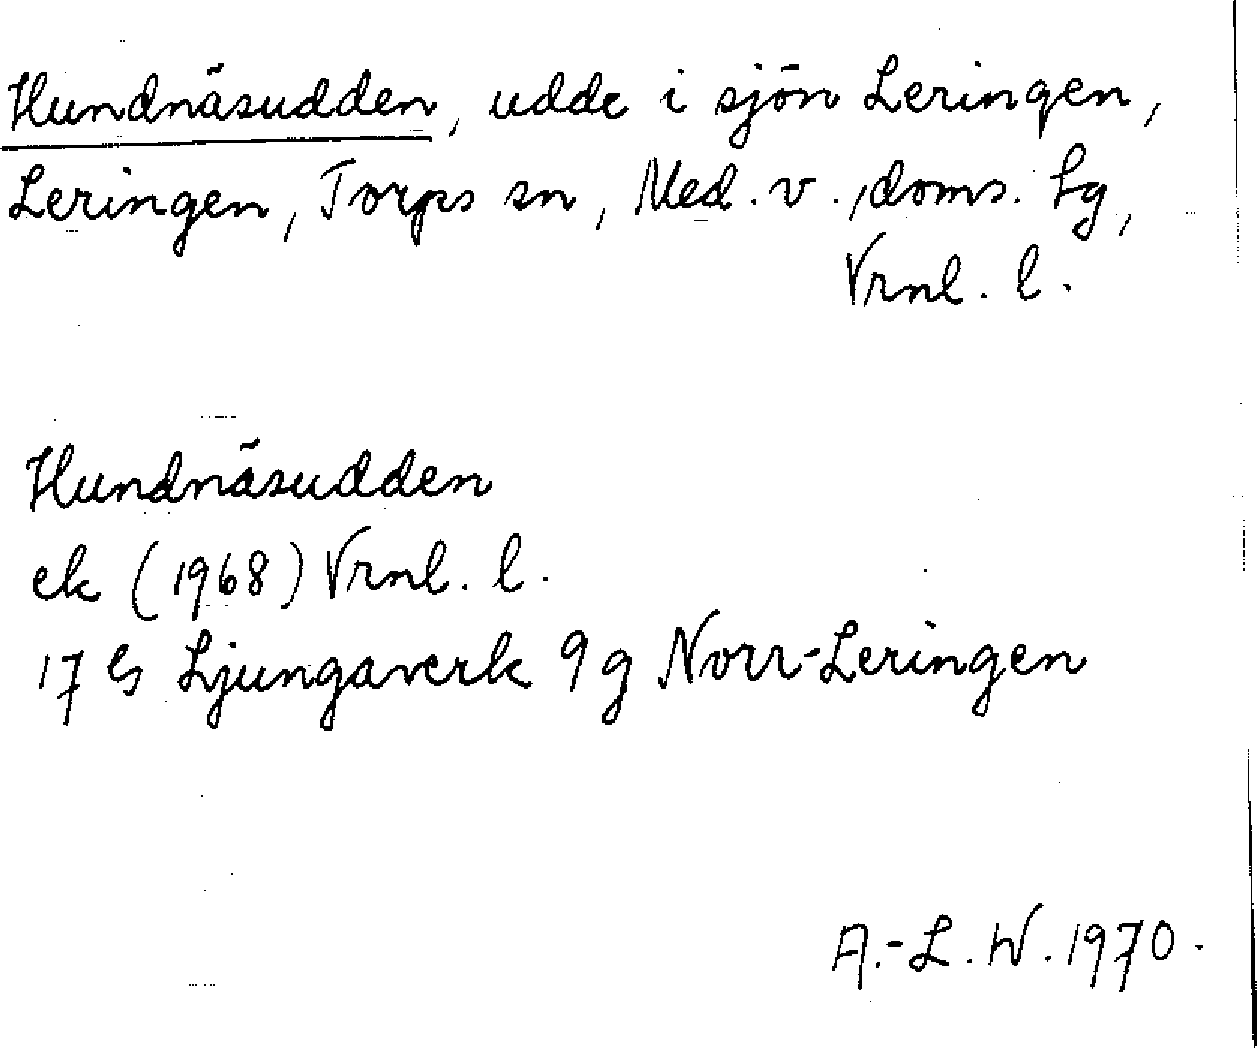 Hundnäsudden, udde i sjön Leringen,
Leringen, Torps sn, Med. v., doms. lg,
Vrnl. l.
Hundnäsudden
ek (1968) Vrnl. l.
17 G Ljungaverk 9 g Norr-Leringen
A.-L. W. 1970.